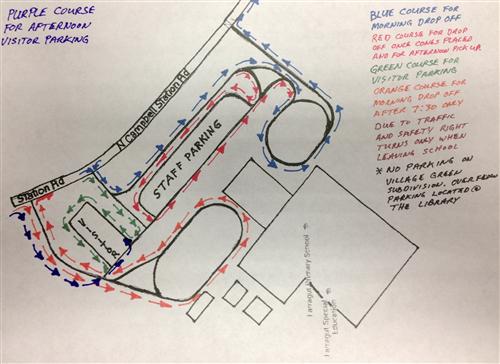 PURPLE COURSE
FOR AFTERNOON
VISITOR PARKING
BLUE COURSE FOR
MORNING DROP OFF
RED COURSE FOR DROP
OFF ONCE CONES PLACED
AND FOR AFTERNOON PICK UP
GREEN COURSE FOR
VISITOR PARKING
ORANGE COURSE FOR
MORNING DROP OFF
AFTER 7:30 ONLY
DUE TO TRAFFIC
AND SAFETY RIGHT
TURNS ONLY WHEN
LEAVING SCHOOL
* NO PARKING ON
VILLAGE GREEN
SUBDIVISION. OVERFLOW
PARKING LOCATED @
THE LIBRARY
N Campbell Station Rd
Station Rd
STAFF PARKING
VISITOR
Farragut Primary School
Farragut Special
Education